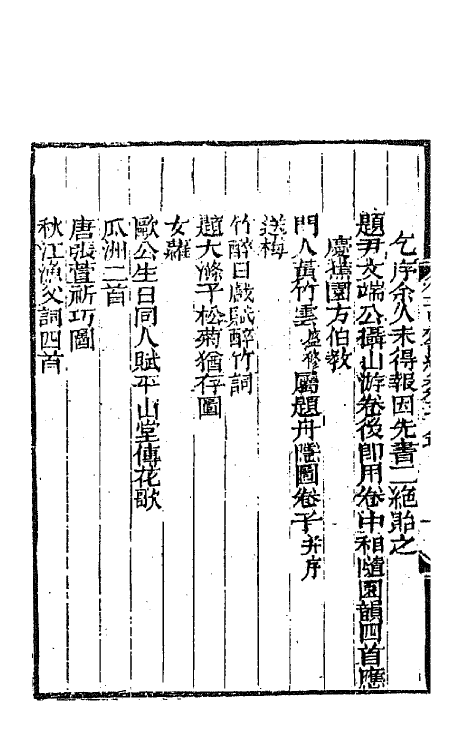 乞序余久未得報因先書二絕貽之
題尹文端公攝山游卷後即用卷中和隨園韻四首應
慶蕉園方伯敎
門人黃竹雲盛修屬題舟隱圖卷子并序
送梅
竹醉日戲賦醉竹詞
題大滌子松菊猶存圖
女蘿
歐公生日同人賦平山堂傳花歌
瓜洲二首
唐張萱祈巧圖
秋江漁父詞四首